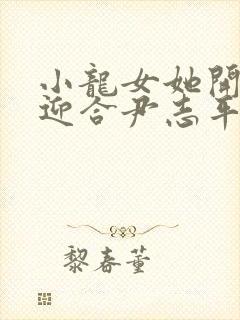 小龍女她開
迎合尹志平
黎春董